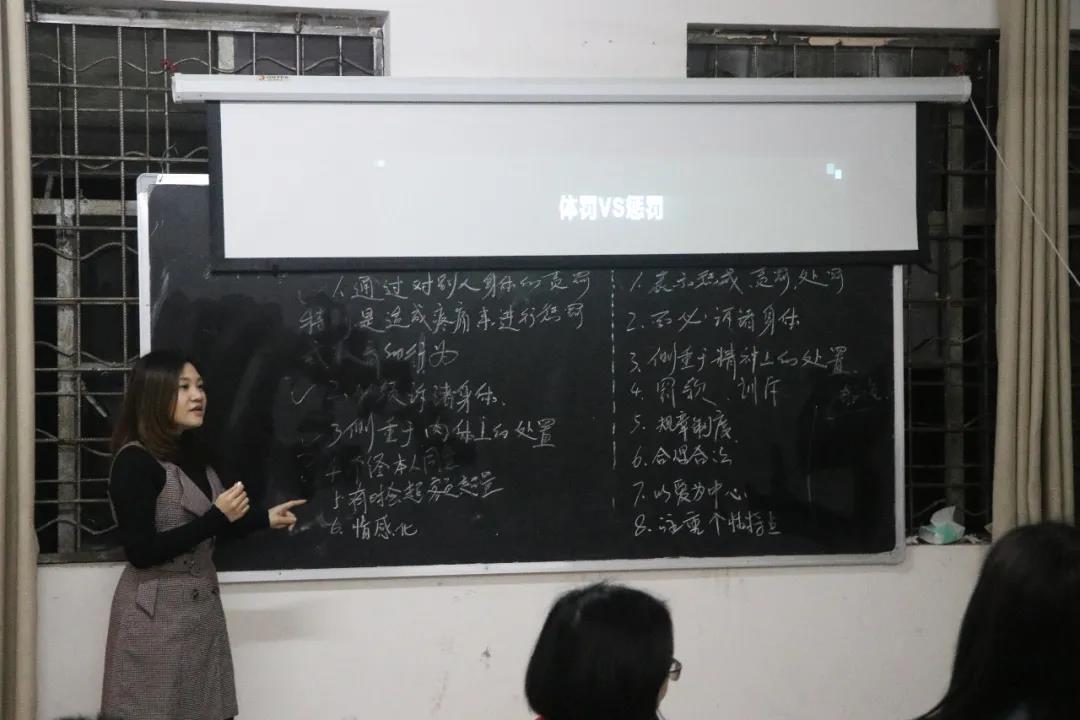 体罚VS惩罚
1.通过对别人身体的责罚
特别是造成疼痛来进行惩罚
的行为
2.必须诉诸身体.
3侧重于肉体上的处置
4.不经本人同意
5.有时会超
6.情感化
1.表示惩戒,责罚,处罚
2.不必诉诸身体
3.侧重于精神上的处置.
4.罚款、训斥
5.规章制度.
6.合理合法
7.以爱为中心.
8.注重个性特点